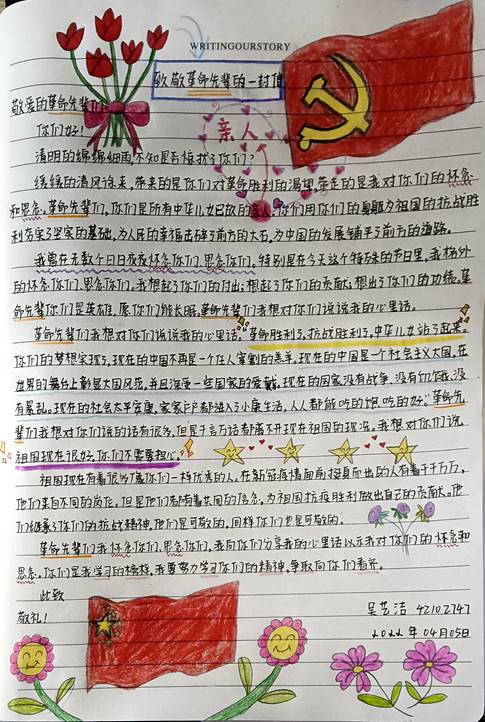 WRITINGOURSTORY
致敬革命先辈的一封信
亲人
敬爱的革命先辈们:
你们好!
清明的绵绵细雨,不知是否惊扰了你们?
缓缓的清风徐来,带来的是你们对革命胜利的渴望,带走的是我对你们的怀念
和思念。革命先辈们,你们是所有中华儿女已故的亲人。你们用你们的身躯为祖国的抗战胜
利夯实了坚实的基础,为人民的幸福击碎了前方的大石,为中国的发展铺平了前方的道路。
我曾在无数个日日夜夜怀念你们,思念你们。特别是在今天这个特殊的节日里,我格外
的怀念你们、思念你们。我想起了你们的付出;想起了你们的贡献;想出了你们的功绩。革
命先辈你们是英雄,愿你们能长眠。革命先辈我想对你们说说我的心里话。
革命先辈们我想对你们说说我的心里话。革命胜利了,抗战胜利了,中华儿女站了起来。
你们的梦想实现了,现在的中国不再是一个任人宰割的羔羊。现在的中国是一个社会主义大国,在
世界的舞台上彰显大国风范,并且深受一些国家的爱戴。现在的国家没有战争、没有饥饿、没
有暴乱。现在的社会太平安康,家家户户都进入了小康生活,人人都能吃的饱,吃的好。革命先
辈们我想对你们说的话有很多,但是千言万语都离不开现在祖国的现况。我想对你们说,
祖国现在很好,你们不需要担心。
祖国现在有着很多像你们一样优秀的人,在新冠疫情面前挺身而出的人有着千千万万,
他们来自不同的岗位。但是他们都有着共同的信念,为祖国抗疫胜利做出自己的贡献。他
们继承了你们的抗战精神,他们是可敬的,同样你们也是可敬的。
革命先辈们我怀念你们、思念你们,我向你们分享我的心里话以示我对你们的怀念和
思念。你们是我学习的榜样,我要努力学习你们的精神,争取向你们看齐。
此致
敬礼!
吴艺洁 42102747
2022年04月05日